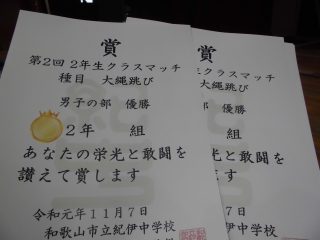 賞
第2回 2年生クラスマッチ
種目 大縄跳び
男子の部 優勝
2年 組
あなたの栄光と敢闘を
讃えて賞します
令和元年11月7日
和歌山市立紀伊中学校
賞
生クラスマッチ
大縄跳び
部 優勝
組
光と敢闘を
します
11月7日
紀伊中学校